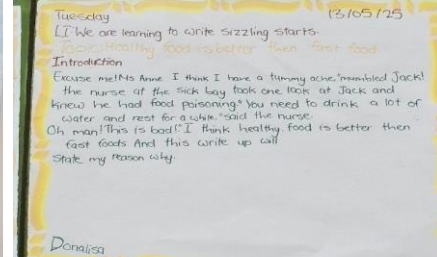 Tuesday 13/05/25
LI: We are learning to write sizzling starts.
Topic: Healthy food is better then fast food
Introduction
Excuse me! Ms Anne I think I have a tummy ache."mumbled Jack!
the nurse at the sick bay took one look at Jack and
knew he had food poisoning." You need to drink a lot of
water and rest for a while."said the nurse.
Oh man! This is bad!"I think healthy food is better then
fast foods. And this write up will
State my reason why.
Donalisa